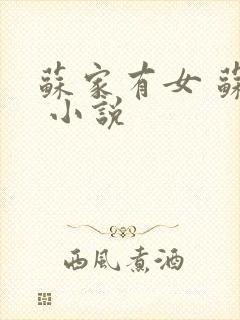 蘇家有女 蘇
小説
西風煮酒